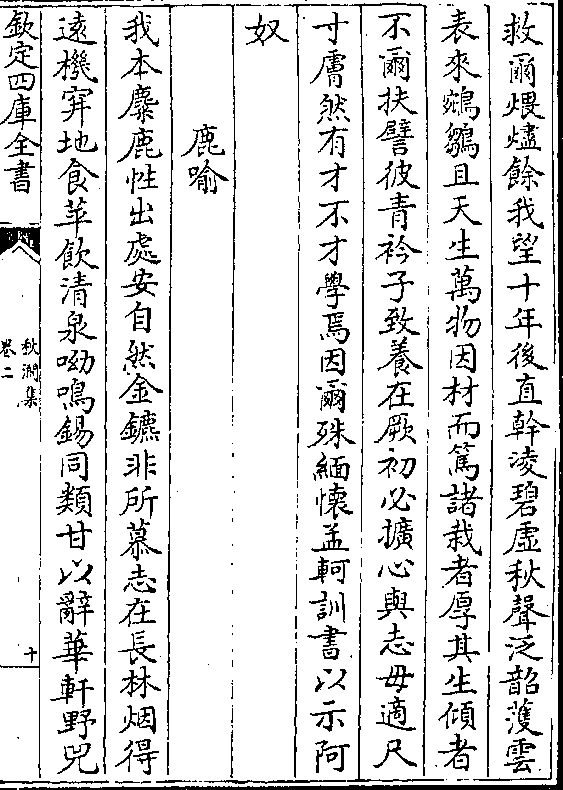 救爾煨燼餘我望十年後直幹凌碧虛秋聲泛韶頀雲
表來鵷鶵且天生萬物因材而篤諸栽者厚其生傾者
不爾扶譬彼青衿子致養在厥初必擴心與志毋適尺
寸膚然有才不才學焉因爾殊緬懷孟軻訓書以示阿
奴
鹿喻
我本麋鹿性出處安自然金鑣非所慕志在長林烟得
遠機穽地食苹飲清泉呦鳴錫同類甘以辭華軒野兕
欽定四庫全書
秋澗集
卷二
十